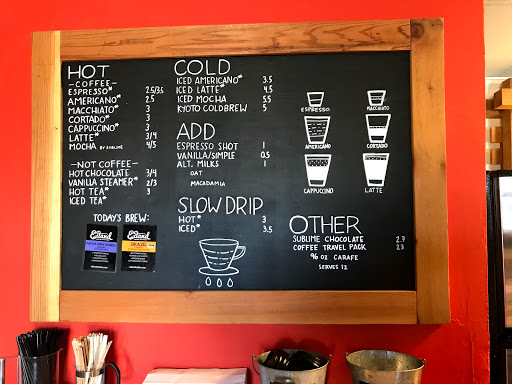 HOT
-COFFEE-
ESPRESSO* 2.5/3.5
AMERICANO* 2.5
MACCHIATO* 3
CORTADO* 3
CAPPUCCINO* 3
LATTE* 3/4
MOCHA BY SUBLIME 4/5
-NOT COFFEE-
HOT CHOCOLATE 3/4
VANILLA STEAMER* 2/3
HOT TEA* 3
ICED TEA*
TODAY'S BREW:
COLD
ICED AMERICANO* 3.5
ICED LATTE* 4.5
ICED MOCHA 5.5
KYOTO COLD BREW 5
ADD
ESPRESSO SHOT 1
VANILLA/SIMPLE 0.5
ALT. MILKS 1
OAT
MACADAMIA
SLOW DRIP
HOT* 3
ICED* 3.5
ESPRESSO
MACCHIATO
AMERICANO
CORTADO
CAPPUCCINO
LATTE
OTHER
SUBLIME CHOCOLATE 2.7
COFFEE TRAVEL PACK 23
96 OZ CARAFE
SERVES 12